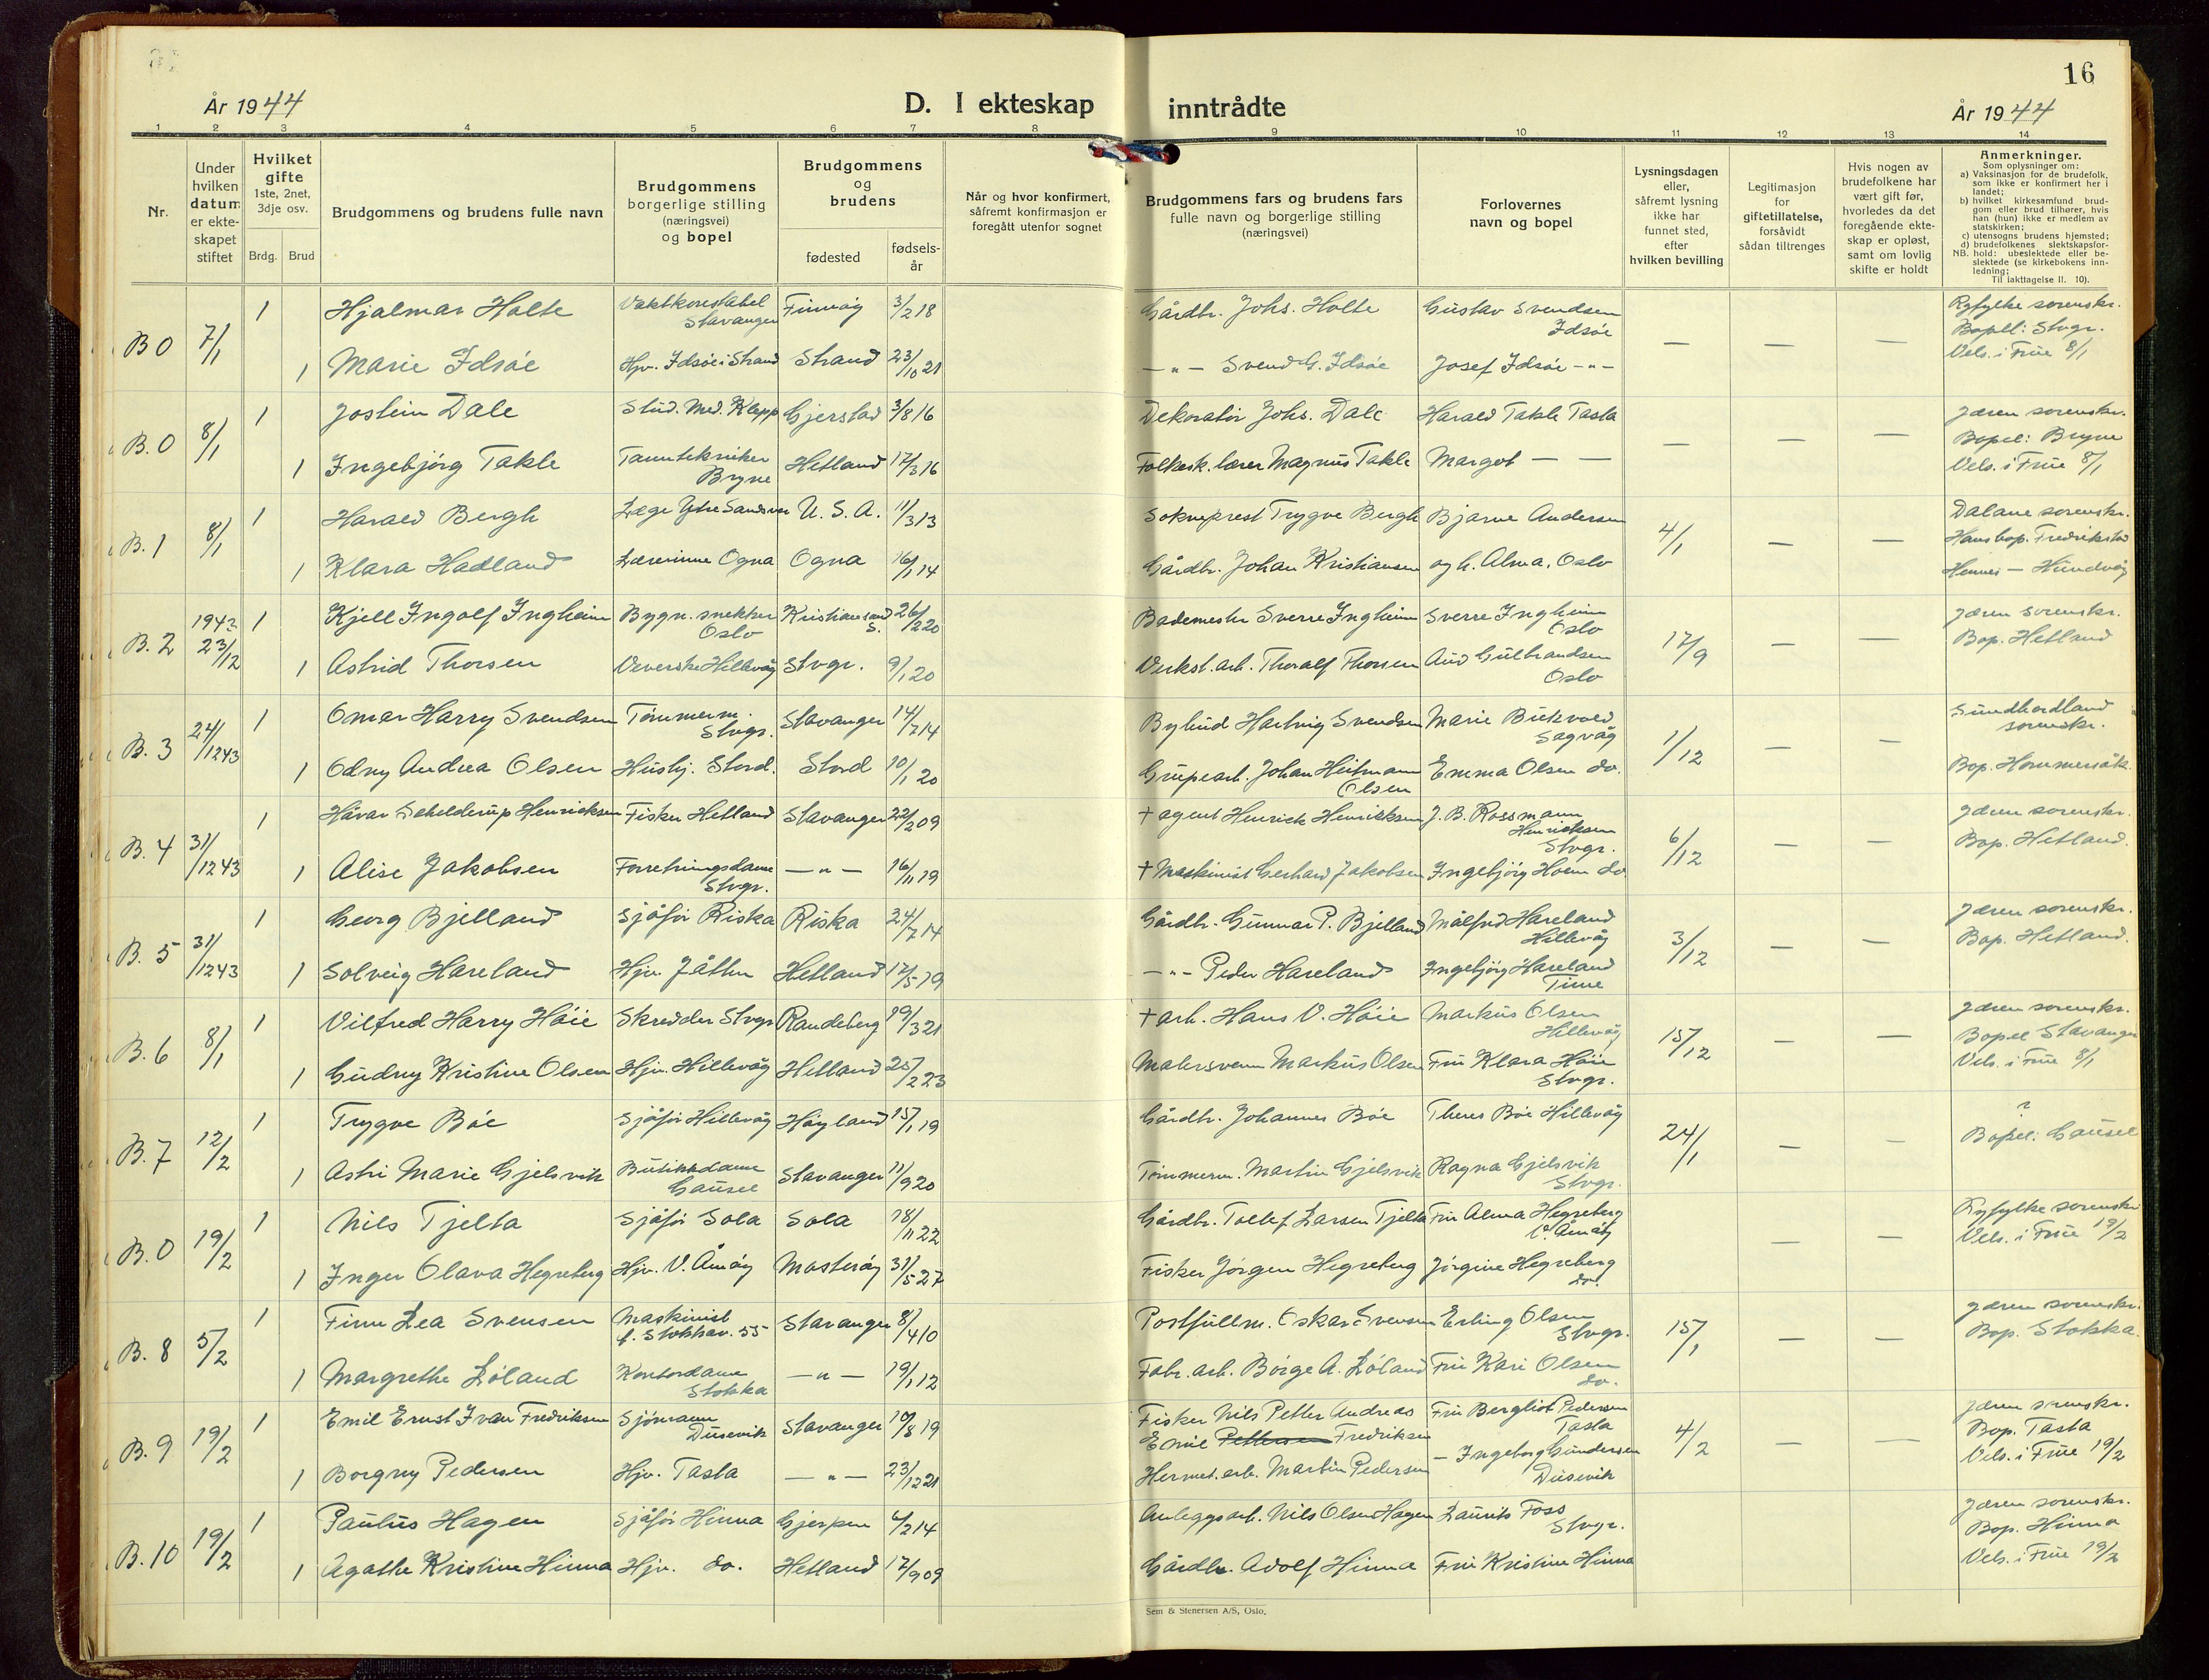 16
År 1944
D. I ekteskap inntrådte
År 1944
1 2 3 4 5 6 7 8 9 10 11 12 13 14
Nr.
Under
hvilken
datum
er ekte-
skapet
stiftet
Hvilket
gifte
1ste, 2net,
3dje osv.
Brdg. Brud
Brudgommens og brudens fulle navn
Brudgommens
borgerlige stilling
(næringsvei)
og bopel
Brudgommens
og
brudens
fødested
fødsels-
år
Når og hvor konfirmert,
såfremt konfirmasjon er
foregått utenfor sognet
Brudgommens fars og brudens fars
fulle navn og borgerlige stilling
(næringsvei)
Forlovernes
navn og bopel
Lysningsdagen
eller,
såfremt lysning
ikke har
funnet sted,
efter
hvilken bevilling
Legitimasjon
for
giftetillatelse,
forsåvidt
sådan tiltrenges
Hvis nogen av
brudefolkene har
vært gift før,
hvorledes da det
foregående ekte-
skap er opløst,
samt om lovlig
skifte er holdt
Anmerkninger.
Som oplysninger om:
a) Vaksinasjon for de brudefolk,
som ikke er konfirmert her i
landet;
b) hvilket kirkesamfund brud-
gom eller brud tilhører, hvis
han (hun) ikke er medlem av
statskirken;
c) utensogns brudens hjemsted;
d) brudefolkenes slektskapsfor-
NB. hold: ubeslektede eller be-
slektede (se kirkebokens inn-
ledning;
Til iakttagelse II. 10).
B 0 7/1 1 Hjalmar Holte Vaktkonstabel Stavanger Finnøy 3/2 18 Gårdbr. Johs. Holte Gustav Svendsen Idsöe — — — Ryfylke sorenskr.
Bopel: Stvgr.
1 Marie Idsöe Hjv. Idsöe i Strand Strand 23/10 21 —"— Svend G. Idsöe Josef Idsöe —"— Vels. i Frue 8/1
B. 0 8/1 1 Jostein Dale Stud. Med. Klepp Gjerstad 3/8 16 Dekoratör Johs. Dale Harald Takle Tasta — — — Jæren sorenskr.
Bopel: Bryne
1 Ingebjörg Takle Tanntekniker Bryne Hetland 17/3 16 Folkesk.lærer Magnus Takle Margot — — Vels. i Frue 8/1
B. 1 8/1 1 Harald Bergh Læge Ytre Sandsvær U. S. A. 11/3 13 Sokneprest Trygve Bergh Bjarne Andersen 4/1 — — Dalane sorenskr.
Hans bop. Fredrikstad
1 Klara Hadland Lærerinne Ogna Ogna 16/1 14 Gårdbr. Johan Kristiansen og h. Alma, Oslo Hennes — Hundvåg
B. 2 1943 23/12 1 Kjell Ingolf Ingheim Bygn. snekker Oslo Kristiansand S. 26/2 20 Bademester Sverre Ingheim Sverre Ingheim Oslo 17/9 — — Jæren sorenskr.
Bop. Hetland
1 Astrid Thorsen Veverske Hillevåg Stvgr. 9/1 20 Verkst.arb. Thoralf Thorsen Aud Gulbrandsen Oslo
B. 3 24/12 43 1 Omar Harry Svendsen Tömmerm. Stvgr. Stavanger 14/7 14 Bybud Hartvig Svendsen Marie Bukvold Sagvåg 1/12 — — Sundhordland sorenskr.
1 Odny Andrea Olsen Hushj. Stord. Stord 10/1 20 Grupearb. Johan Heitmann Olsen Emma Olsen do. Bop. Hommersåk
B. 4 31/12 43 1 Håvar Schelderup Henricksen Fisker Hetland Stavanger 22/2 09 † agent Henrick Henricksen J. B. Rossmann Henricksen Stvgr. 6/12 — — Jæren sorenskr.
Bop. Hetland.
1 Alise Jakobsen Forretningsdame Stvgr. —"— 16/11 19 † Maskinist Gerhard Jakobsen Ingebjörg Hoem do
B. 5 31/12 43 1 Georg Bjelland Sjåför Riska Riska 24/7 14 Gårdbr. Gunnar P. Bjelland Målfrid Hareland Hillevåg 3/12 — — Jæren sorenskr.
Bop. Hetland.
1 Solveig Hareland Hjv. Jåtten Hetland 17/5 19 —"— Peder Hareland Ingebjörg Hareland Time
B. 6 8/1 1 Vilfred Harry Höie Skredder Stvgr Randeberg 19/3 21 † arb. Hans V. Höie Markus Olsen Hillevåg 15/12 — — Jæren sorenskr.
Bopel Stavanger
1 Gudny Kristine Olsen Hjv. Hillevåg Hetland 25/2 23 Malersvenn Markus Olsen Fru Klara Höie Stvgr. Vels. i Frue 8/1
B. 7 12/2 1 Trygve Böe Sjåför Hillevåg Höyland 15/1 19 Gårdbr. Johannes Böe Theres Böe Hillevåg 24/1 — — ?
Bopel: Gausel
1 Astri Marie Gjelsvik Butikkdame Gausel Stavanger 11/9 20 Tömmerm. Martin Gjelsvik Ragna Gjelsvik Stvgr.
B. 0 19/2 1 Nils Tjelta Sjåför Sola Sola 18/11 22 Gårdbr. Tollef Larsen Tjelta Fru Alma Hegreberg V. Åmöy — — Ryfylke sorenskr
Vels. i Frue 19/2
1 Inger Olava Hegreberg Hjv. V. Åmöy Mosteröy 31/5 27 Fisker Jörgen Hegreberg Jörgine Hegreberg do.
B. 8 5/2 1 Finn Lea Svensen Maskinist f. Stokkav. 55 Stavanger 8/4 10 Postfullm. Oskar Svensen Erling Olsen Stvgr. 15/1 — — Jæren sorenskr.
Bop. Stokka.
1 Margrethe Löland Kontordame Stokka —"— 19/1 12 Fabr.arb. Börge A. Löland Fru Kari Olsen do.
B. 9 19/2 1 Emil Ernst Ivan Fredriksen Sjömann Dusevik Stavanger 10/8 19 Fisker Nils Petter Andreas Emil Pettersen Fredriksen Fru Bergliot Pedersen Tasta 4/2 — — Jæren sorenskr.
Bop. Tasta
1 Borgny Pedersen Hjv. Tasta —"— 23/12 21 Hermet.arb. Martin Pedersen — Ingeborg Gundersen Dusevik Vels. i Frue 19/2
B. 10 19/2 1 Paulus Hagen Sjåför Hinna Gjerpen 4/2 14 Anleggsarb. Nils Olsen Hagen Laurits Foss Stvgr. Jæren sorenskr.
Bop. Hinna
1 Agathe Kristine Hinna Hjv. do. Hetland 17/9 09 Gårdbr. Adolf Hinna Fru Kristine Hinna Vels. i Frue 19/2
Sem & Stenersen A/S, Oslo.